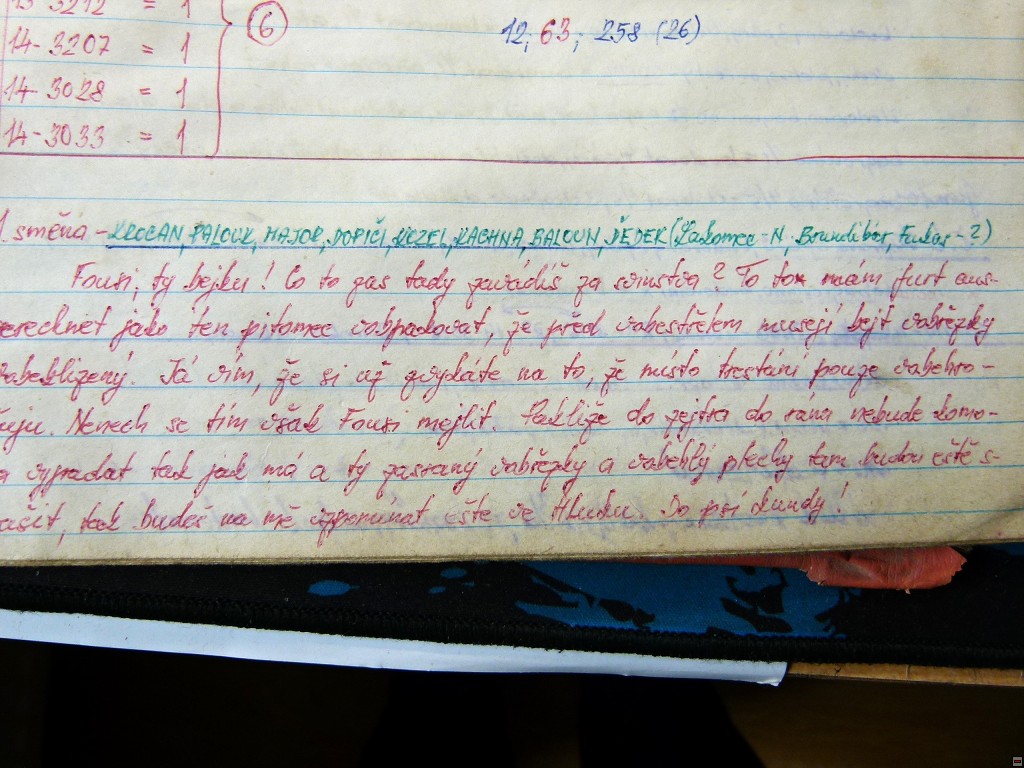 13-3212 = 1
14-3207 = 1
14-3028 = 1
14-3033 = 1
6
12; 63; 258 (26)
1. směna - KROCAN, PALOUK, MAJOR, DOPIČI, KOZEL, KACHNA, BALOUN, DĚDEK (Lakomec - N. Brundibár, Fukas - ?)
Fousi, ty bejku! Co to zas tady zavádíš za svinstva? To mám furt
jako ten pitomec vobpadovat, že před musejí bejt vobřezky
Já vím, že si už zvykáte na to, že místo trestání pouze
Nenech se tím však Fousi mejlit. Pakliže do zejtra do rána nebude komo-
a vypadat tak jak má a ty zasraný vobřezky a voběhlý plechy tam budou eště s-
ašit, tak budeš na mě vzpomínat ešte ve Hluku. Do psí kundy!